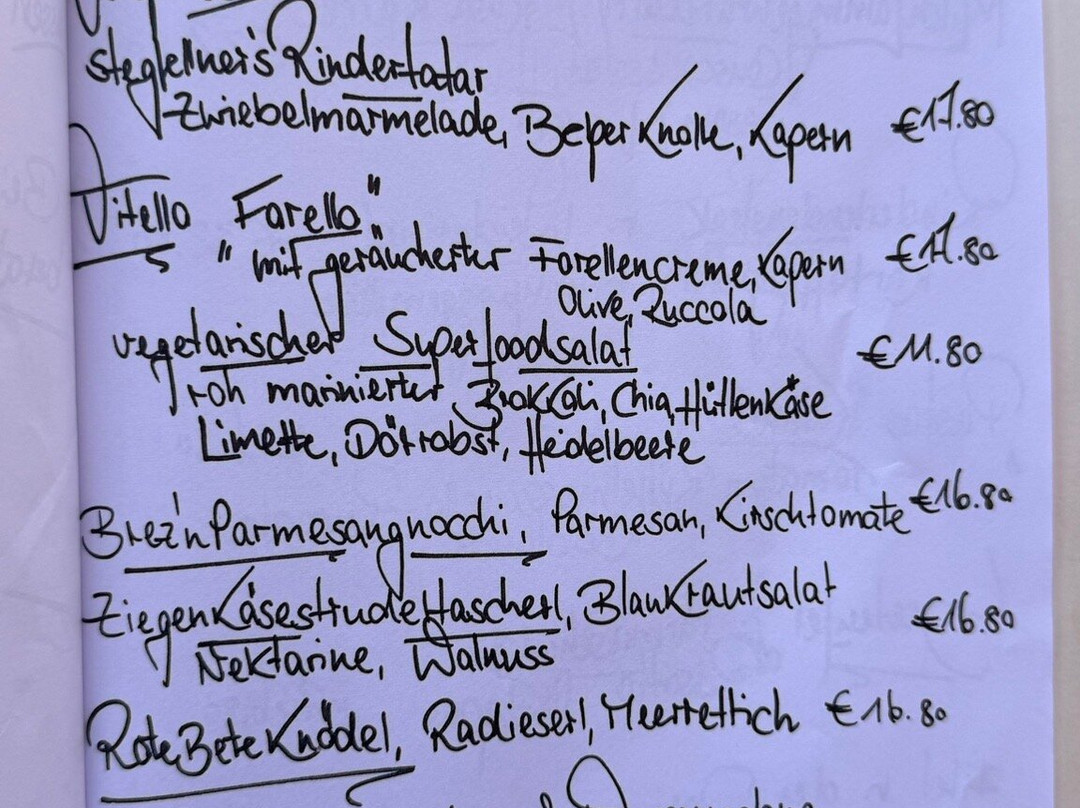 steglellner's Rindertatar
Zwiebelmarmelade, Beper Knolle, Kapern €17.80
Vitello Forello"
" mit geräucherter Forellencreme, Kapern €17.80
Olive, Ruccola
vegetarischer Superfoodsalat €11.80
roh marinierter Brokkoli, Chia, Hüttenkäse
Limette, Dörrobst, Heidelbeere
Brez'n Parmesangnocchi, Parmesan, Kirschtomate €16.80
Ziegenkäsestrudeltascherl, Blaukrautsalat €16.80
Nektarine, Walnuss
Rote Bete Knödel, Radieserl, Meerrettich €16.80